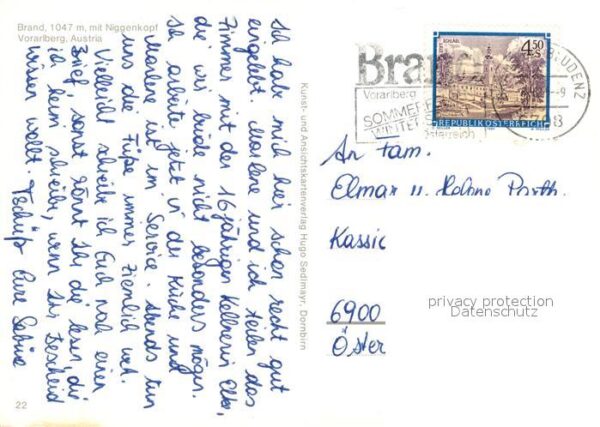 Brand, 1047 m, mit Niggenkopf
Vorarlberg, Austria
Ich habe mich hier schon recht gut
eingelebt. Marlene und ich teilen das
Zimmer mit der 16 jährigen Kellnerin Elke,
die wir beide nicht besonders mögen.
Ich arbeite jetzt in der Küche und
Marlene ist im Service. Abends tun
uns die Füße immer ziemlich weh.
Vielleicht schreibe ich Euch noch einen
Brief, sonst könnt Ihr die lesen, die
ich heim schreibe, wenn Ihr Bescheid
wissen wollt. Tschüß Eure Sabine
22
Kunst- und Ansichtskartenverlag Hugo Sedlmayr, Dornbirn
Brand
Vorarlberg
SOMMER
WINTER
Österreich
BLUDENZ
-9
STIFT SCHLÄGL
4.50 S
REPUBLIK ÖSTERREICH
An Fam.
Elmar u.
Kassic
6900
Öster
privacy protection
Datenschutz